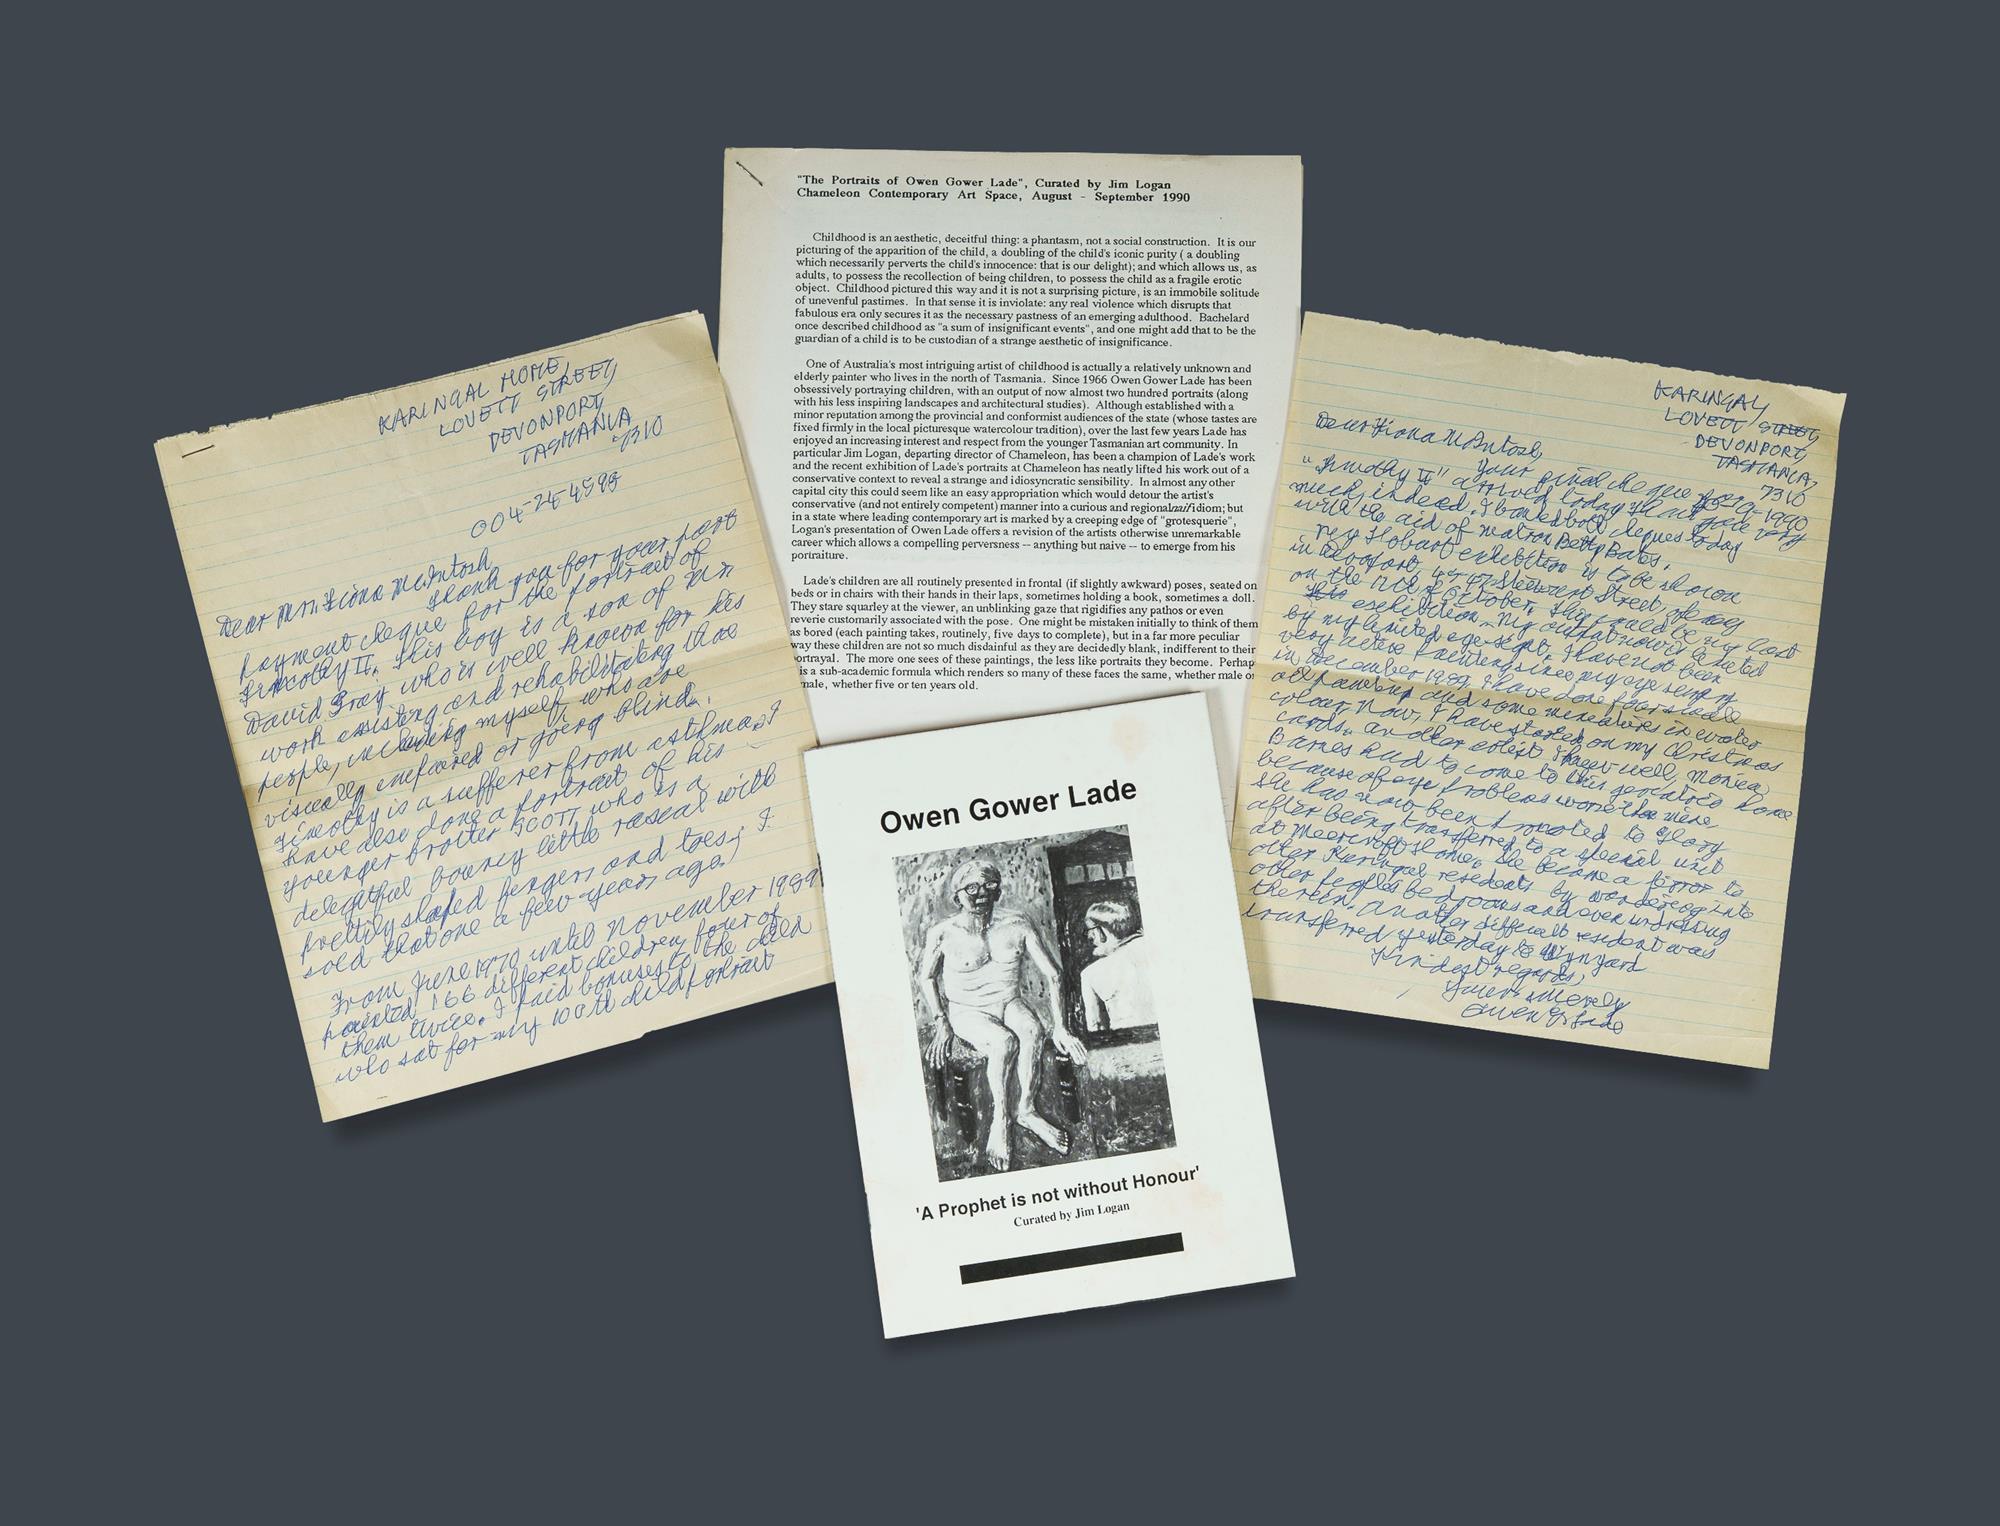 "The Portraits of Owen Gower Lade", Curated by Jim Logan
Chameleon Contemporary Art Space, August - September 1990
Childhood is an aesthetic, deceitful thing: a phantasm, not a social construction. It is our
picturing of the apparition of the child, a doubling of the child's iconic purity ( a doubling
which necessarily perverts the child's innocence: that is our delight); and which allows us, as
adults, to possess the recollection of being children, to possess the child as a fragile erotic
object. Childhood pictured this way and it is not a surprising picture, is an immobile solitude
of unevenful pastimes. In that sense it is inviolate: any real violence which disrupts that
fabulous era only secures it as the necessary pastness of an emerging adulthood. Bachelard
once described childhood as "a sum of insignificant events", and one might add that to be the
guardian of a child is to be custodian of a strange aesthetic of insignificance.
One of Australia's most intriguing artist of childhood is actually a relatively unknown and
elderly painter who lives in the north of Tasmania. Since 1966 Owen Gower Lade has been
obsessively portraying children, with an output of now almost two hundred portraits (along
with his less inspiring landscapes and architectural studies). Although established with a
minor reputation among the provincial and conformist audiences of the state (whose tastes are
fixed firmly in the local picturesque watercolour tradition), over the last few years Lade has
enjoyed an increasing interest and respect from the younger Tasmanian art community. In
particular Jim Logan, departing director of Chameleon, has been a champion of Lade's work
and the recent exhibition of Lade's portraits at Chameleon has neatly lifted his work out of a
conservative context to reveal a strange and idiosyncratic sensibility. In almost any other
capital city this could seem like an easy appropriation which would detour the artist's
conservative (and not entirely competent) manner into a curious and regional naif idiom; but
in a state where leading contemporary art is marked by a creeping edge of "grotesquerie",
Logan's presentation of Owen Lade offers a revision of the artists otherwise unremarkable
career which allows a compelling perverseness -- anything but naive -- to emerge from his
portraiture.
Lade's children are all routinely presented in frontal (if slightly awkward) poses, seated on
beds or in chairs with their hands in their laps, sometimes holding a book, sometimes a doll.
They stare squarley at the viewer, an unblinking gaze that rigidifies any pathos or even
reverie customarily associated with the pose. One might be mistaken initially to think of them
as bored (each painting takes, routinely, five days to complete), but in a far more peculiar
way these children are not so much disdainful as they are decidedly blank, indifferent to their
portrayal. The more one sees of these paintings, the less like portraits they become. Perhap
is a sub-academic formula which renders so many of these faces the same, whether male or
male, whether five or ten years old.
KARINGAL HOME,
LOVETT STREET,
DEVONPORT,
TASMANIA
7310
004-24-4598
Dear Mrs. Fiona McIntosh,
Thank you for your part
payment cheque for the portrait of
Timothy II. This boy is a son of Mr
David Gray who is well known for his
work assisting and rehabilitating those
people, including myself, who are
visually impaired or going blind.
Timothy is a sufferer from asthma. I
have also done a portrait of his
younger brother SCOTT who is a
delightful bouncy little rascal with
prettily shaped fingers and toes; I
sold that one a few years ago.
From June 1970 until November 1989 I
painted 166 different children, four of
them twice. I paid bonuses to the child
who sat for my 100th child portrait
KARINGAL,
LOVETT STREET,
DEVONPORT,
TASMANIA,
7310
Dear Fiona McIntosh,
Your final cheque for
"Timothy II" arrived today. Thank you very
much, indeed. I banked both cheques today
with the aid of matron Betty Bates.
My Hobart exhibition is to be shown
in Devonport, 45-47 Stewart Street, opening
on the 7th of October. This could be my last
exhibition. My output now is limited
by my limited eyesight. I have not been
very active painting since my eye surgery
in December 1989. I have done four small
oil paintings and some miniatures in water
colour. Now, I have started on my Christmas
cards. Another artist I knew well, Monica
Barnes had to come to this geriatric home
because of eye problems worse than mine.
She has now been promoted to Glory
after being transferred to a special unit
at Meercroft Home. She became a terror to
other Karingal residents by wandering into
other peoples bedrooms and even undressing
therein. Another difficult resident was
transferred yesterday to Wynyard
Kindest regards,
Yours sincerely
Owen G. Lade
Owen Gower Lade
'A Prophet is not without Honour'
Curated by Jim Logan